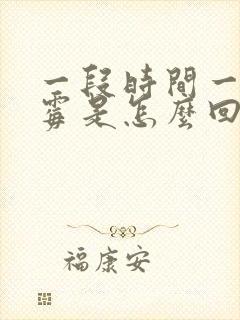 一段時間一
霉是怎麼回
福康安